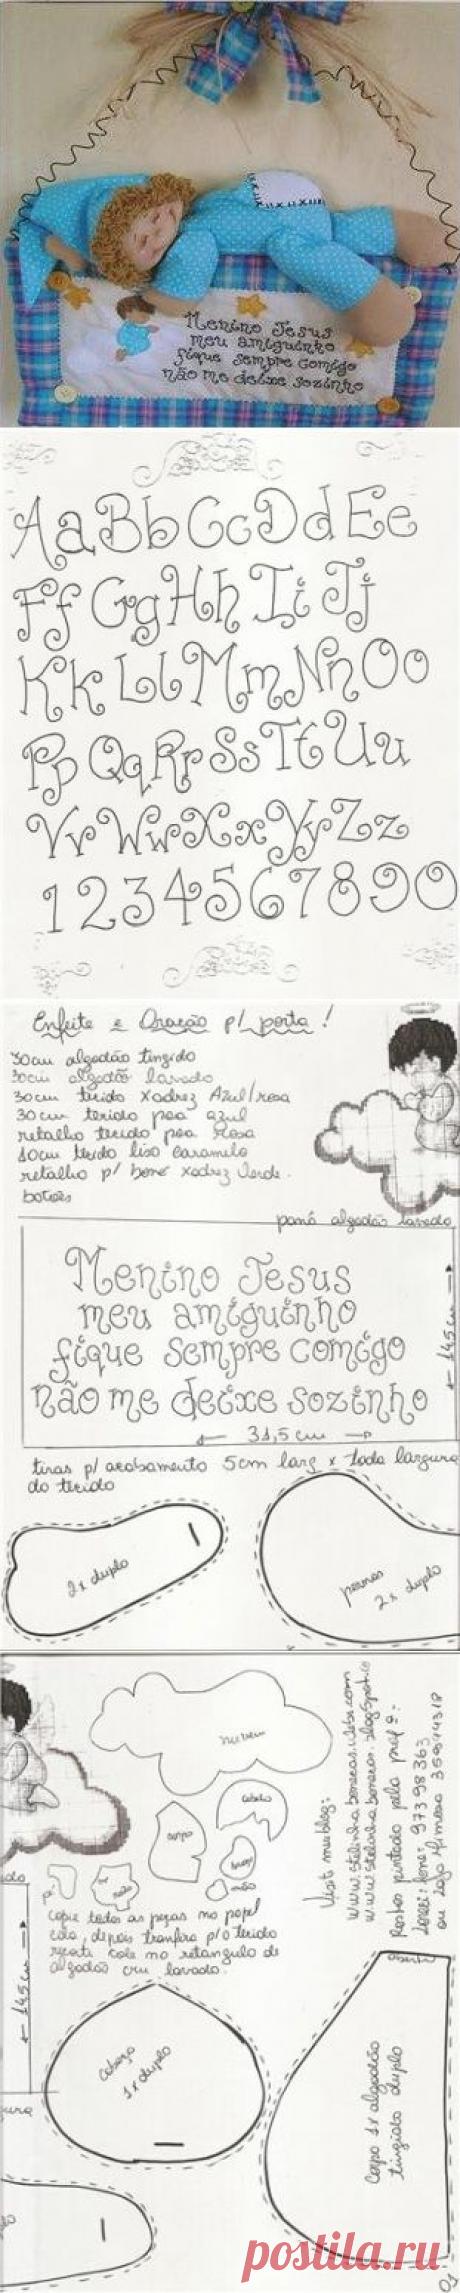 Menino Jesus
meu amiguinho
fique sempre comigo
não me deixe sozinho
AaBbCcDdEe
FfGgHhIiJj
KkLlMmNnOo
PpQqRrSsTtUu
VvWwXxYyZz
1234567890
Enfeite e Oração p/ porta!
30cm algodão tingido
30cm algodão lavado
30cm tecido xadrez Azul/rosa
30cm tecido poa azul
retalho tecido poa Rosa
10cm tecido liso caramelo
retalho p/ boné xadrez Verde.
botões
panô algodão lavado
Menino Jesus
meu amiguinho
fique sempre comigo
não me deixe sozinho
14,5 cm
31,5 cm
tiras p/ acabamento 5cm larg x toda largura
do tecido
2x duplo
pernas
2x duplo
nuvem
cabelo
corpo
braço
mão
pé
copie todas as peças no papel
cola, depois tranfira p/ o tecido
recorte cole no retangulo de
algodão cru lavado.
Visit meu blog:
Rostos pintado pela profª:
14,5 cm
cabeça
1x duplo
Corpo 1x algodão
tingido duplo
01
postila.ru